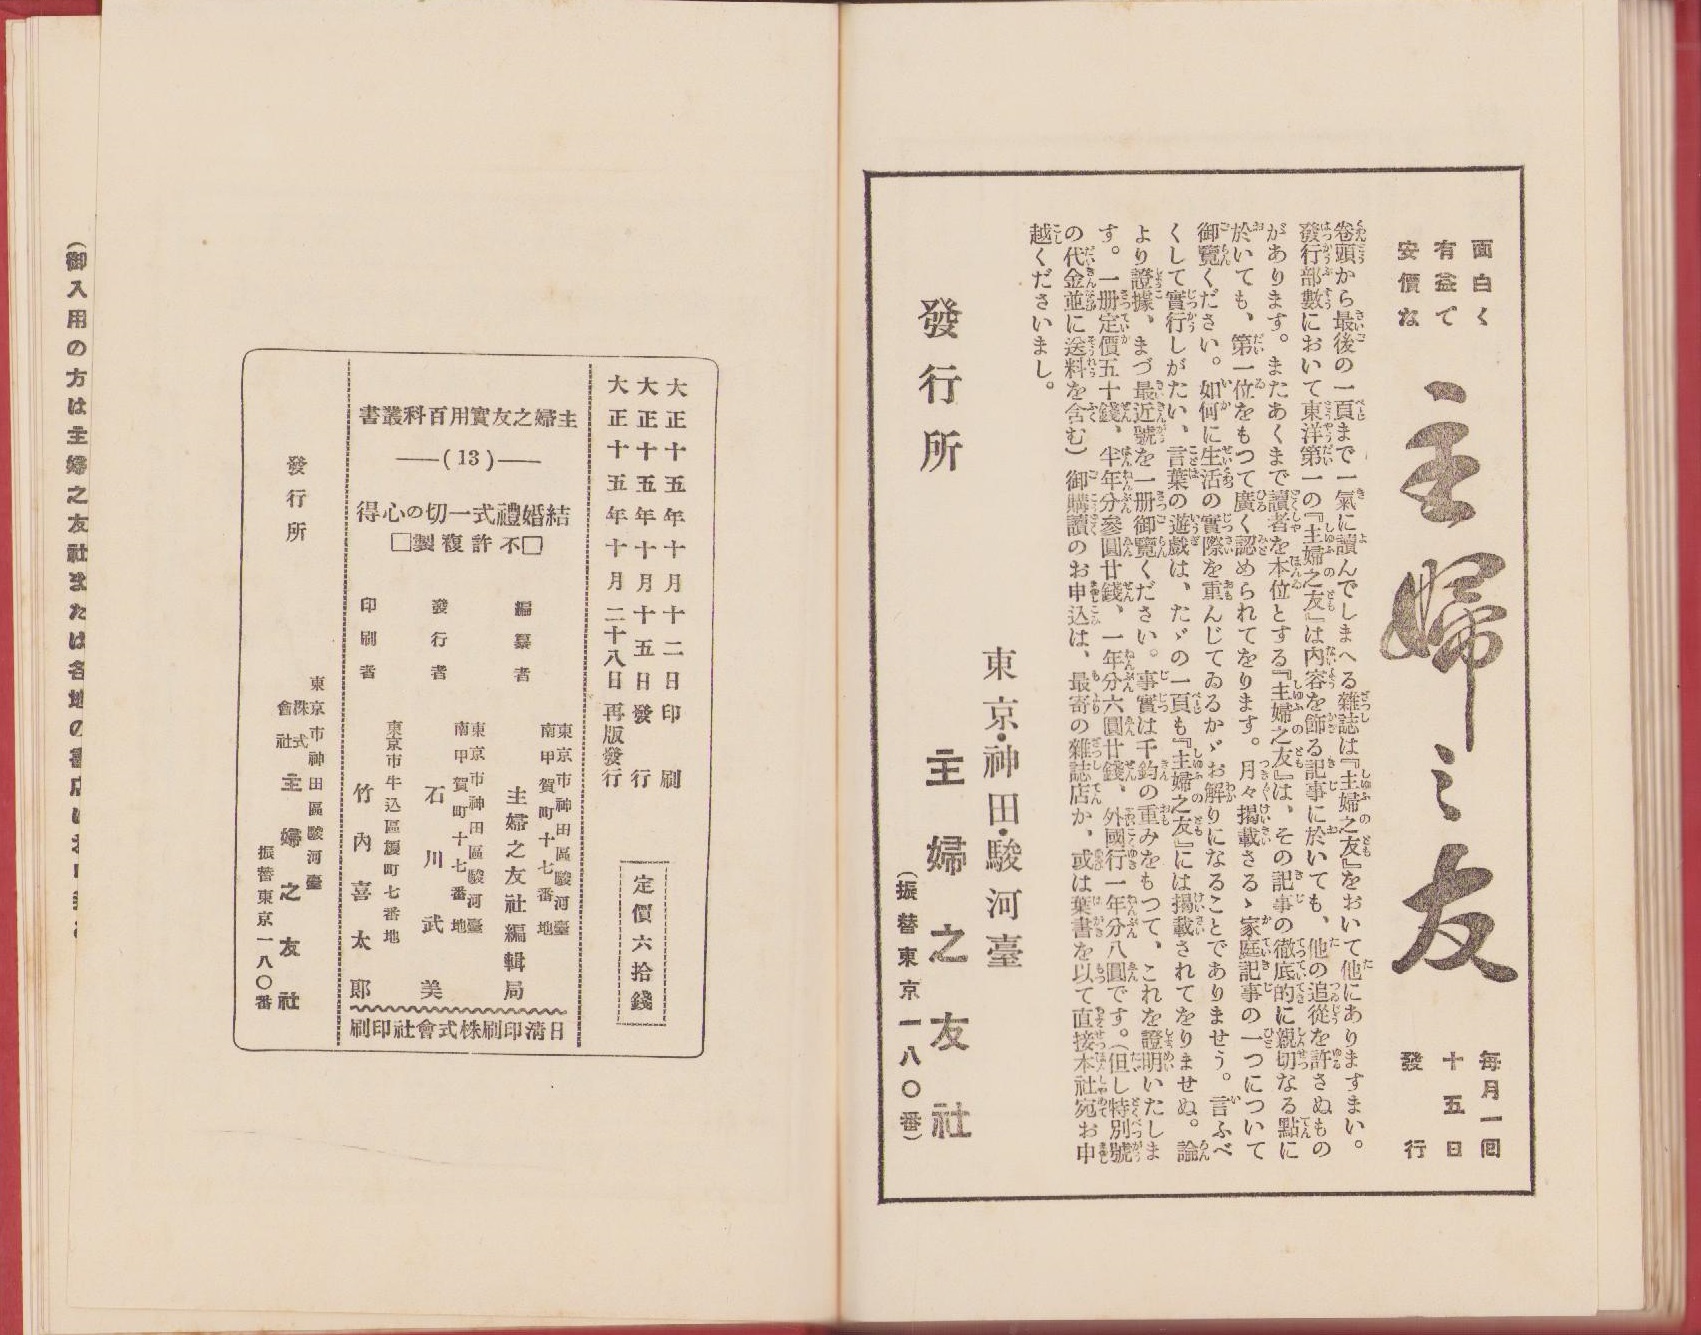 面白く
有益で
安價な
主婦之友
毎月一囘
十五日
發行
卷頭から最後の一頁まで一氣に讀んでしまへる雜誌は『主婦之友』をおいて他にありますまい。
發行部數において東洋第一の『主婦之友』は内容を飾る記事に於いても、他の追從を許さぬもの
があります。またあくまで讀者を本位とする『主婦之友』は、その記事の徹底的に親切なる點に
於いても、第一位をもつて廣く認められてをります。月々掲載さるゝ家庭記事の一つについて
御覽ください。如何に生活の實際を重んじてゐるかゞお解りになることでありませう。言ふべ
くして實行しがたい、言葉の遊戲は、たゞの一頁も『主婦之友』には掲載されてをりませぬ。論
より證據、まづ最近號を一册御覽ください。事實は千鈞の重みをもつて、これを證明いたしま
す。一册定價五十錢、半年分參圓廿錢、一年分六圓廿錢、外國行一年分八圓です。（但し特別號
の代金並に送料を含む）御購讀のお申込は、最寄の雜誌店か、或は葉書を以て直接本社宛お申
越くださいまし。
東京・神田・駿河臺
發行所 主婦之友社
（振替東京一八〇番）
大正十五年十月十二日印刷
大正十五年十月十五日發行
大正十五年十月二十八日再版發行
定價六拾錢
主婦之友實用百科叢書
―(13)―
結婚禮式一切の心得
□不許複製□
編纂者
東京市神田區駿河臺
南甲賀町十七番地
主婦之友社編輯局
發行者
東京市神田區駿河臺
南甲賀町十七番地
石川武美
印刷者
東京市牛込區榎町七番地
竹内喜太郎
日清印刷株式會社印刷
發行所
東京市神田區駿河臺
株式會社 主婦之友社
振替東京一八〇番
（御入用の方は主婦之友社または各地の書店に